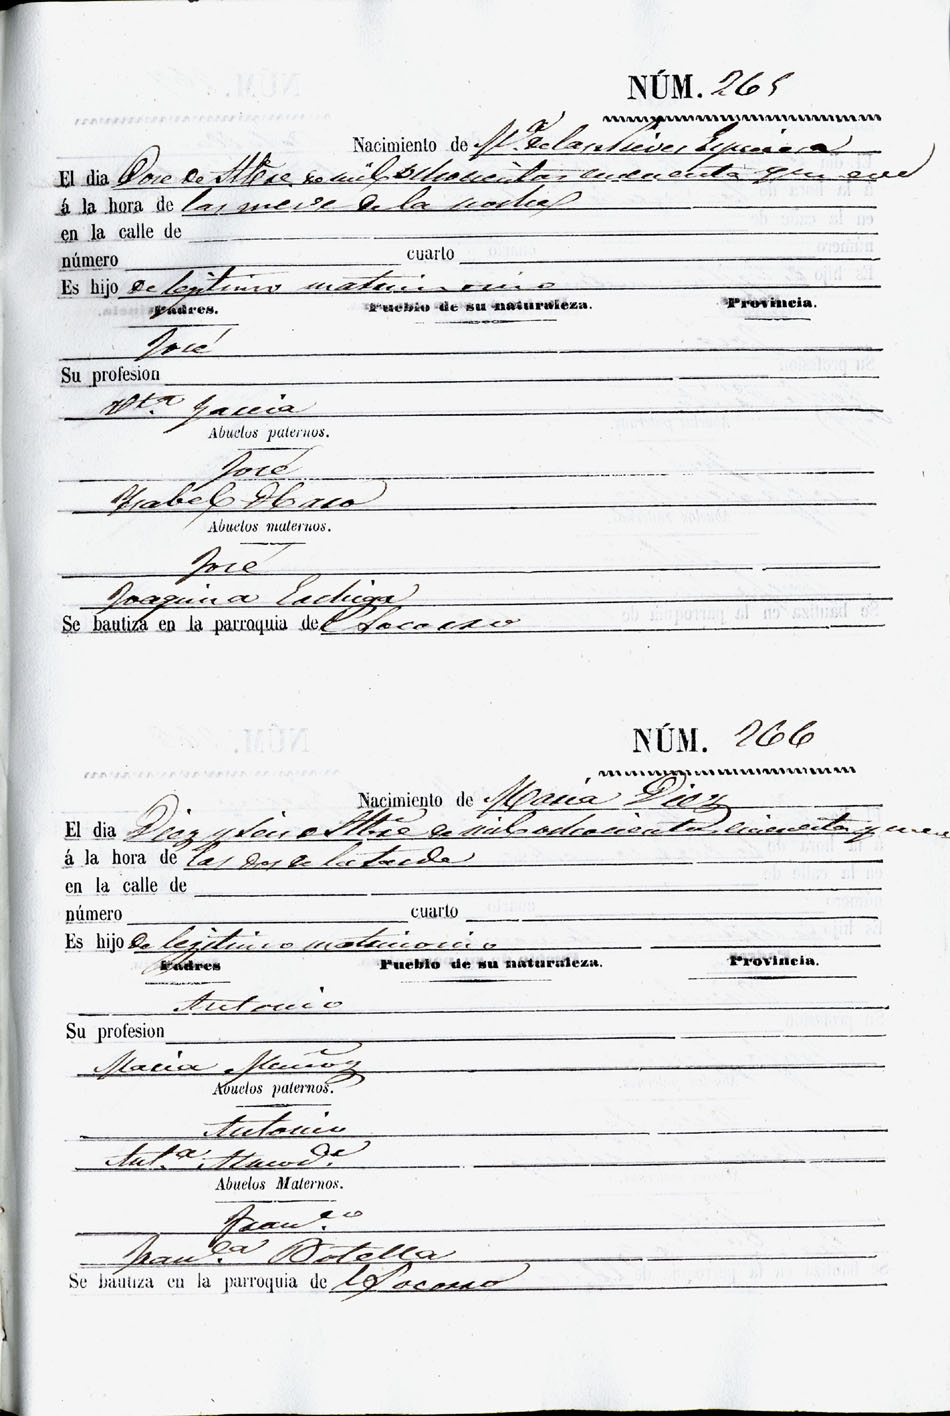 NÚM. 265
Nacimiento de M.ª de las Nieves Espinosa
El dia Doce de Stbre. de mil ochocientos cincuenta y nueve
á la hora de las nueve de la noche
en la calle de
número cuarto
Es hijo de legitimo matrimonio
Padres. Pueblo de su naturaleza. Provincia.
José
Su profesion
Garcia
Abuelos paternos.
José
Ysabel
Abuelos maternos.
José
Joaquina
Se bautiza en la parroquia del Socorro
NÚM. 266
Nacimiento de Maria Diez
El dia Diez y seis de Stbre de mil ochocientos cincuenta y nueve
á la hora de las dos de la tarde
en la calle de
número cuarto
Es hijo de legitimo matrimonio
Padres Pueblo de su naturaleza. Provincia.
Antonio
Su profesion
Maria Muñoz
Abuelos paternos.
Antonio
Ant.ª
Abuelos Maternos.
Fran.co
Fran.ca Botella
Se bautiza en la parroquia de l Socorro